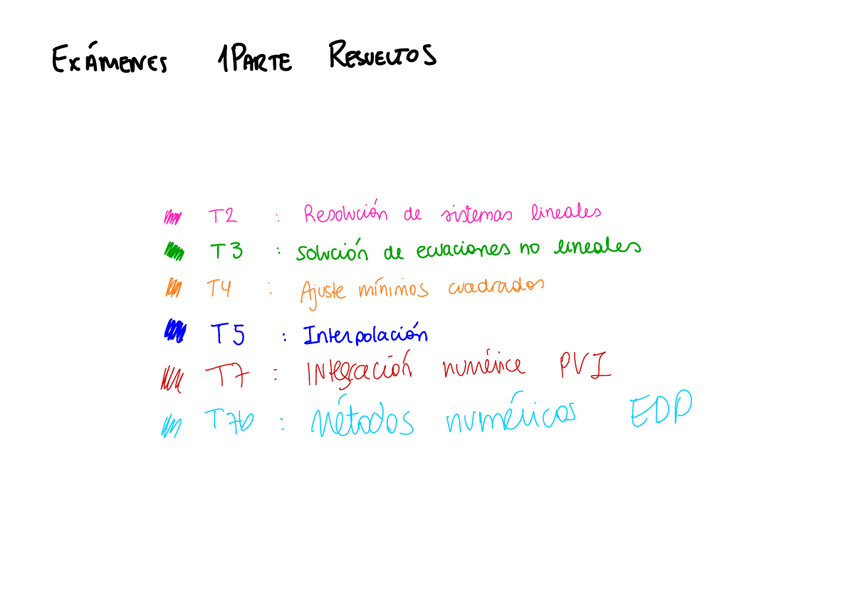 EXÁMENES 1PARTE RESUELTOS
T2 : Resolución de sistemas lineales
T3 : Solución de ecuaciones no lineales
T4 : Ajuste mínimos cuadrados
T5 : Interpolación
T7 : Integración numérica PVI
T7b : Métodos numéricos EDP